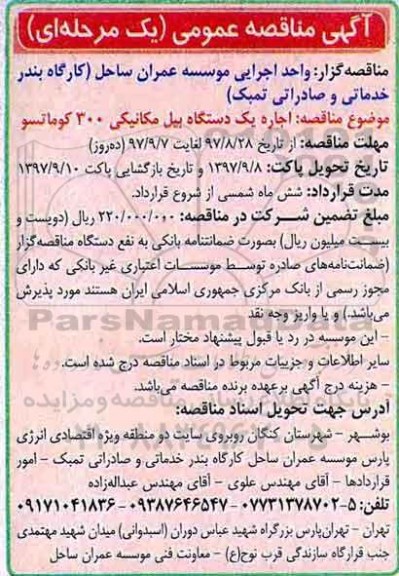 آگهی مناقصه عمومی (یک مرحله‌ای)
مناقصه‌گزار: واحد اجرایی موسسه عمران ساحل (کارگاه بندر
خدماتی و صادراتی تمبک)
موضوع مناقصه: اجاره یک دستگاه بیل مکانیکی ۳۰۰ کوماتسو
مهلت مناقصه: از تاریخ ۹۷/۸/۲۸ لغایت ۹۷/۹/۷ (ده‌روز)
تاریخ تحویل پاکت: ۱۳۹۷/۹/۸ و تاریخ بازگشایی پاکت ۱۳۹۷/۹/۱۰
مدت قرارداد: شش ماه شمسی از شروع قرارداد.
مبلغ تضمین شرکت در مناقصه: ۲۲۰/۰۰۰/۰۰۰ ریال (دویست و
بیست میلیون ریال) بصورت ضمانتنامه بانکی به نفع دستگاه مناقصه‌گزار
(ضمانت‌نامه‌های صادره توسط موسسات اعتباری غیر بانکی که دارای
مجوز رسمی از بانک مرکزی جمهوری اسلامی ایران هستند مورد پذیرش
می‌باشد.) و یا واریز وجه نقد
- این موسسه در رد یا قبول پیشنهاد مختار است.
سایر اطلاعات و جزییات مربوط در اسناد مناقصه درج شده است.
- هزینه درج آگهی برعهده برنده مناقصه می‌باشد.
آدرس جهت تحویل اسناد مناقصه:
بوشهر - شهرستان کنگان روبروی سایت دو منطقه ویژه اقتصادی انرژی
پارس موسسه عمران ساحل کارگاه بندر خدماتی و صادراتی تمبک - امور
قراردادها - آقای مهندس علوی - آقای مهندس عبداله‌زاده
تلفن: ۵-۰۷۷۳۱۳۷۸۷۰۲ - ۰۹۳۸۷۶۴۶۵۴۷ - ۰۹۱۷۱۰۴۱۸۳۶
تهران - تهران‌پارس بزرگراه شهید عباس دوران (اسبدوانی) میدان شهید مهتمدی
جنب قرارگاه سازندگی قرب نوح(ع) - معاونت فنی موسسه عمران ساحل
ParsNamadData